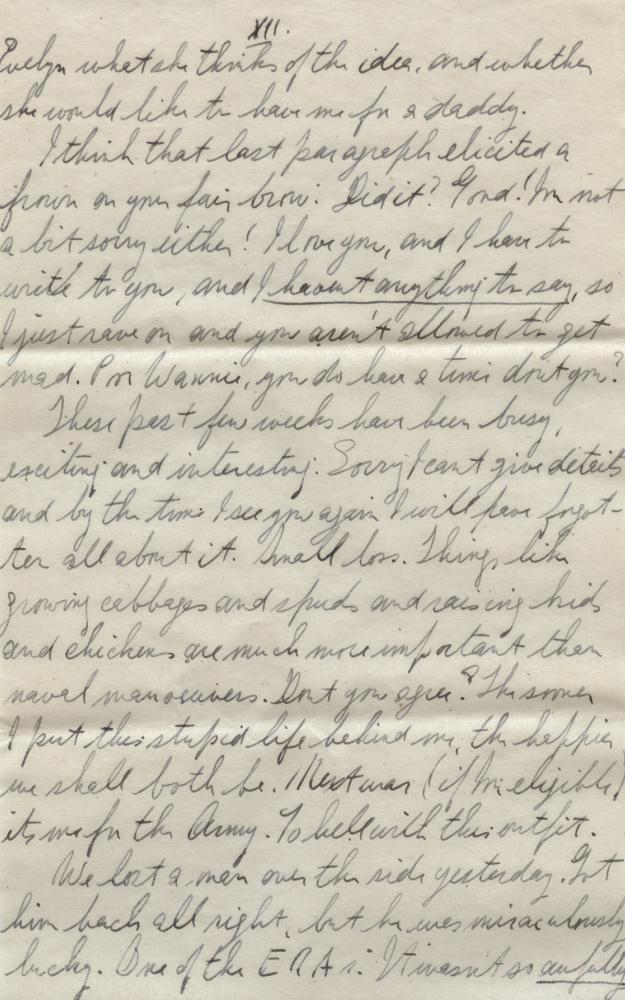 XII.
Evelyn what she thinks of the idea, and whether
she would like to have me for a daddy.
I think that last paragraph elicited a
frown on your fair brow. Did it? Good! I'm not
a bit sorry either! I love you, and I have to
write to you, and I havent anything to say, so
I just rave on and you aren't allowed to get
mad. Poor Wannie, you do have a time dont you?
These past few weeks have been busy,
exciting and interesting. Sorry I cant give details
and by the time I see you again I will have forgot-
ten all about it. Small loss. Things like
growing cabbages and spuds and raising kids
and chickens are much more important than
naval manoeuvers. Dont you agree? The sooner
I put this stupid life behind me, the happier
we shall both be. Next war (if I'm eligible)
its me for the Army. To hell with this outfit.
We lost a man over the side yesterday. Got
him back all right, but he was miraculously
lucky. One of the E R A s. It wasn't so awfully